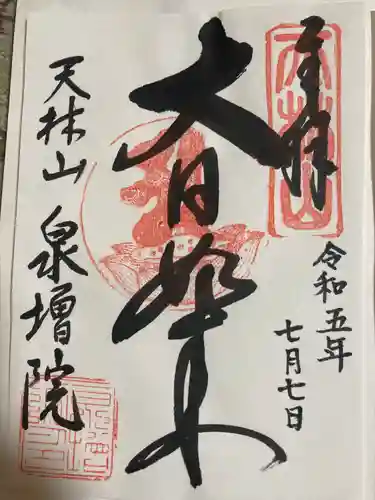 奉拝
令和五年
七月七日
大日如来
天林山 泉増院
天林山